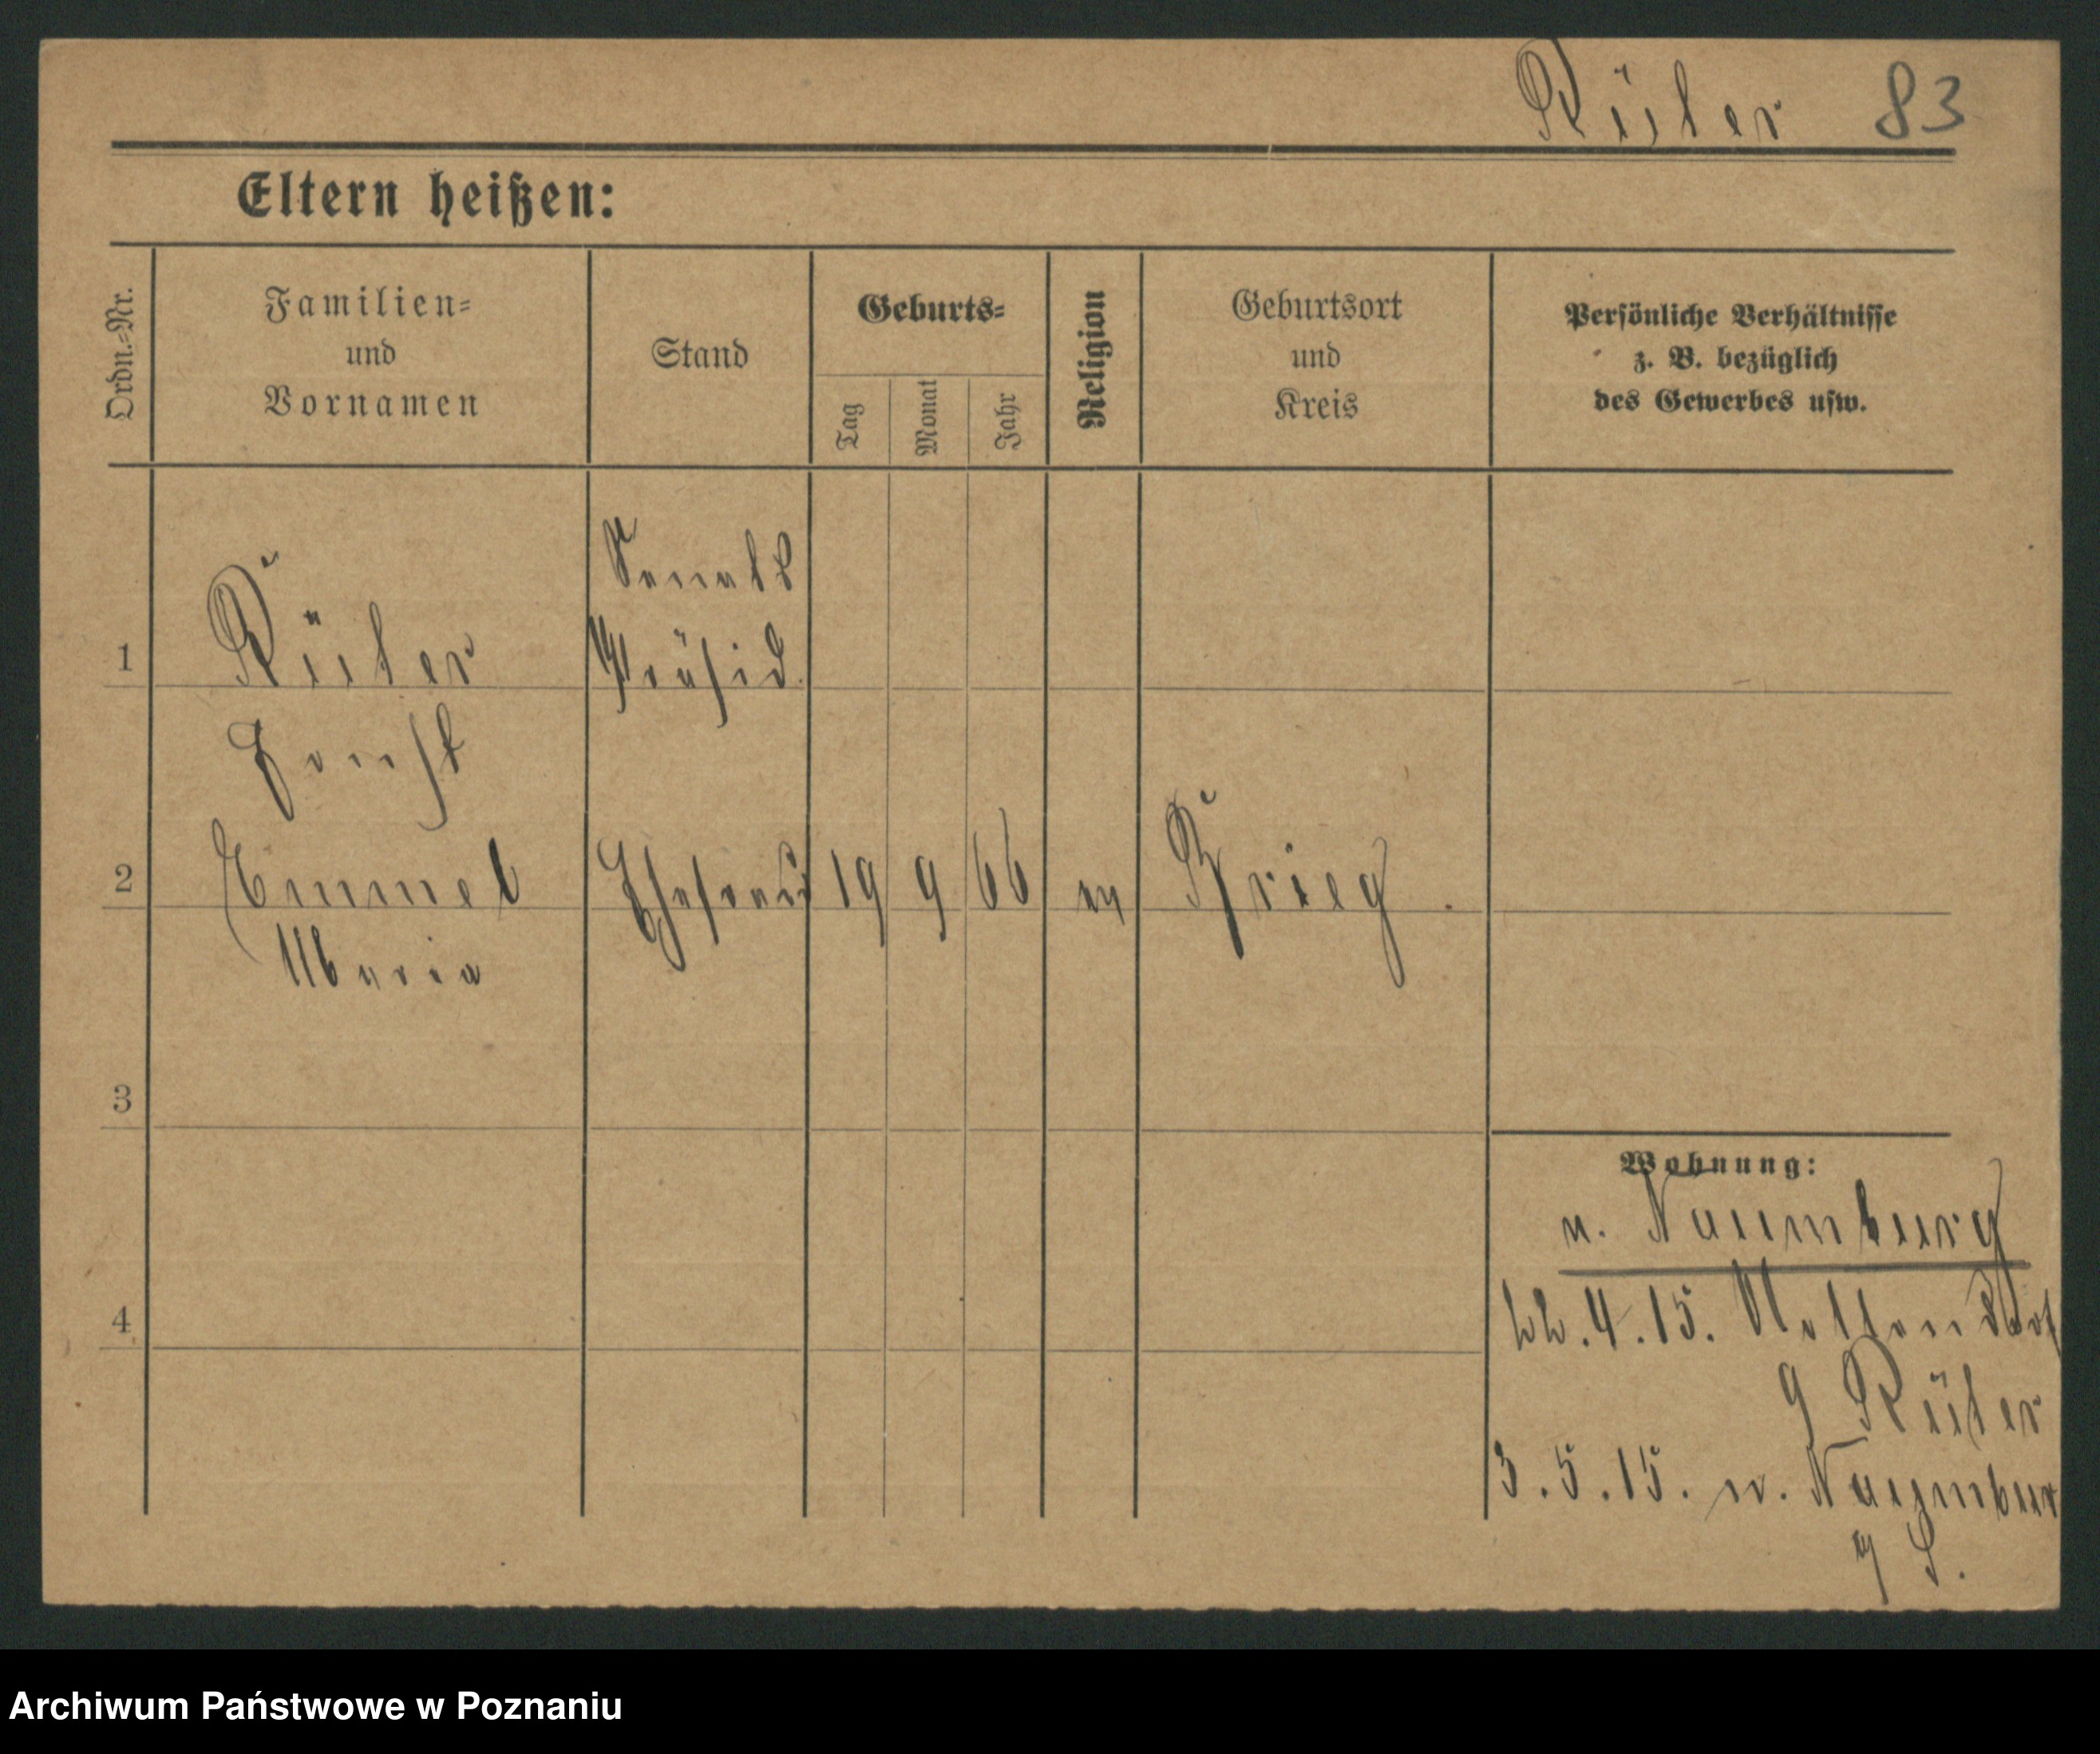 Rüter 83
Eltern heißen:
Ordn.=Nr.
Familien=
und
Vornamen
Stand
Geburts=
Tag
Monat
Jahr
Religion
Geburtsort
und
Kreis
Persönliche Verhältnisse
z. B. bezüglich
des Gewerbes usw.
Senats
1 Rüter Präsid.
Ernst
2 Emmel Ehefrau 19 9 66 ev Brieg
Maria
3
Wohnung:
n. Naumburg
4
22.4.15.
Rüter
3.5.15. n. Naumbur
g S.
Archiwum Państwowe w Poznaniu